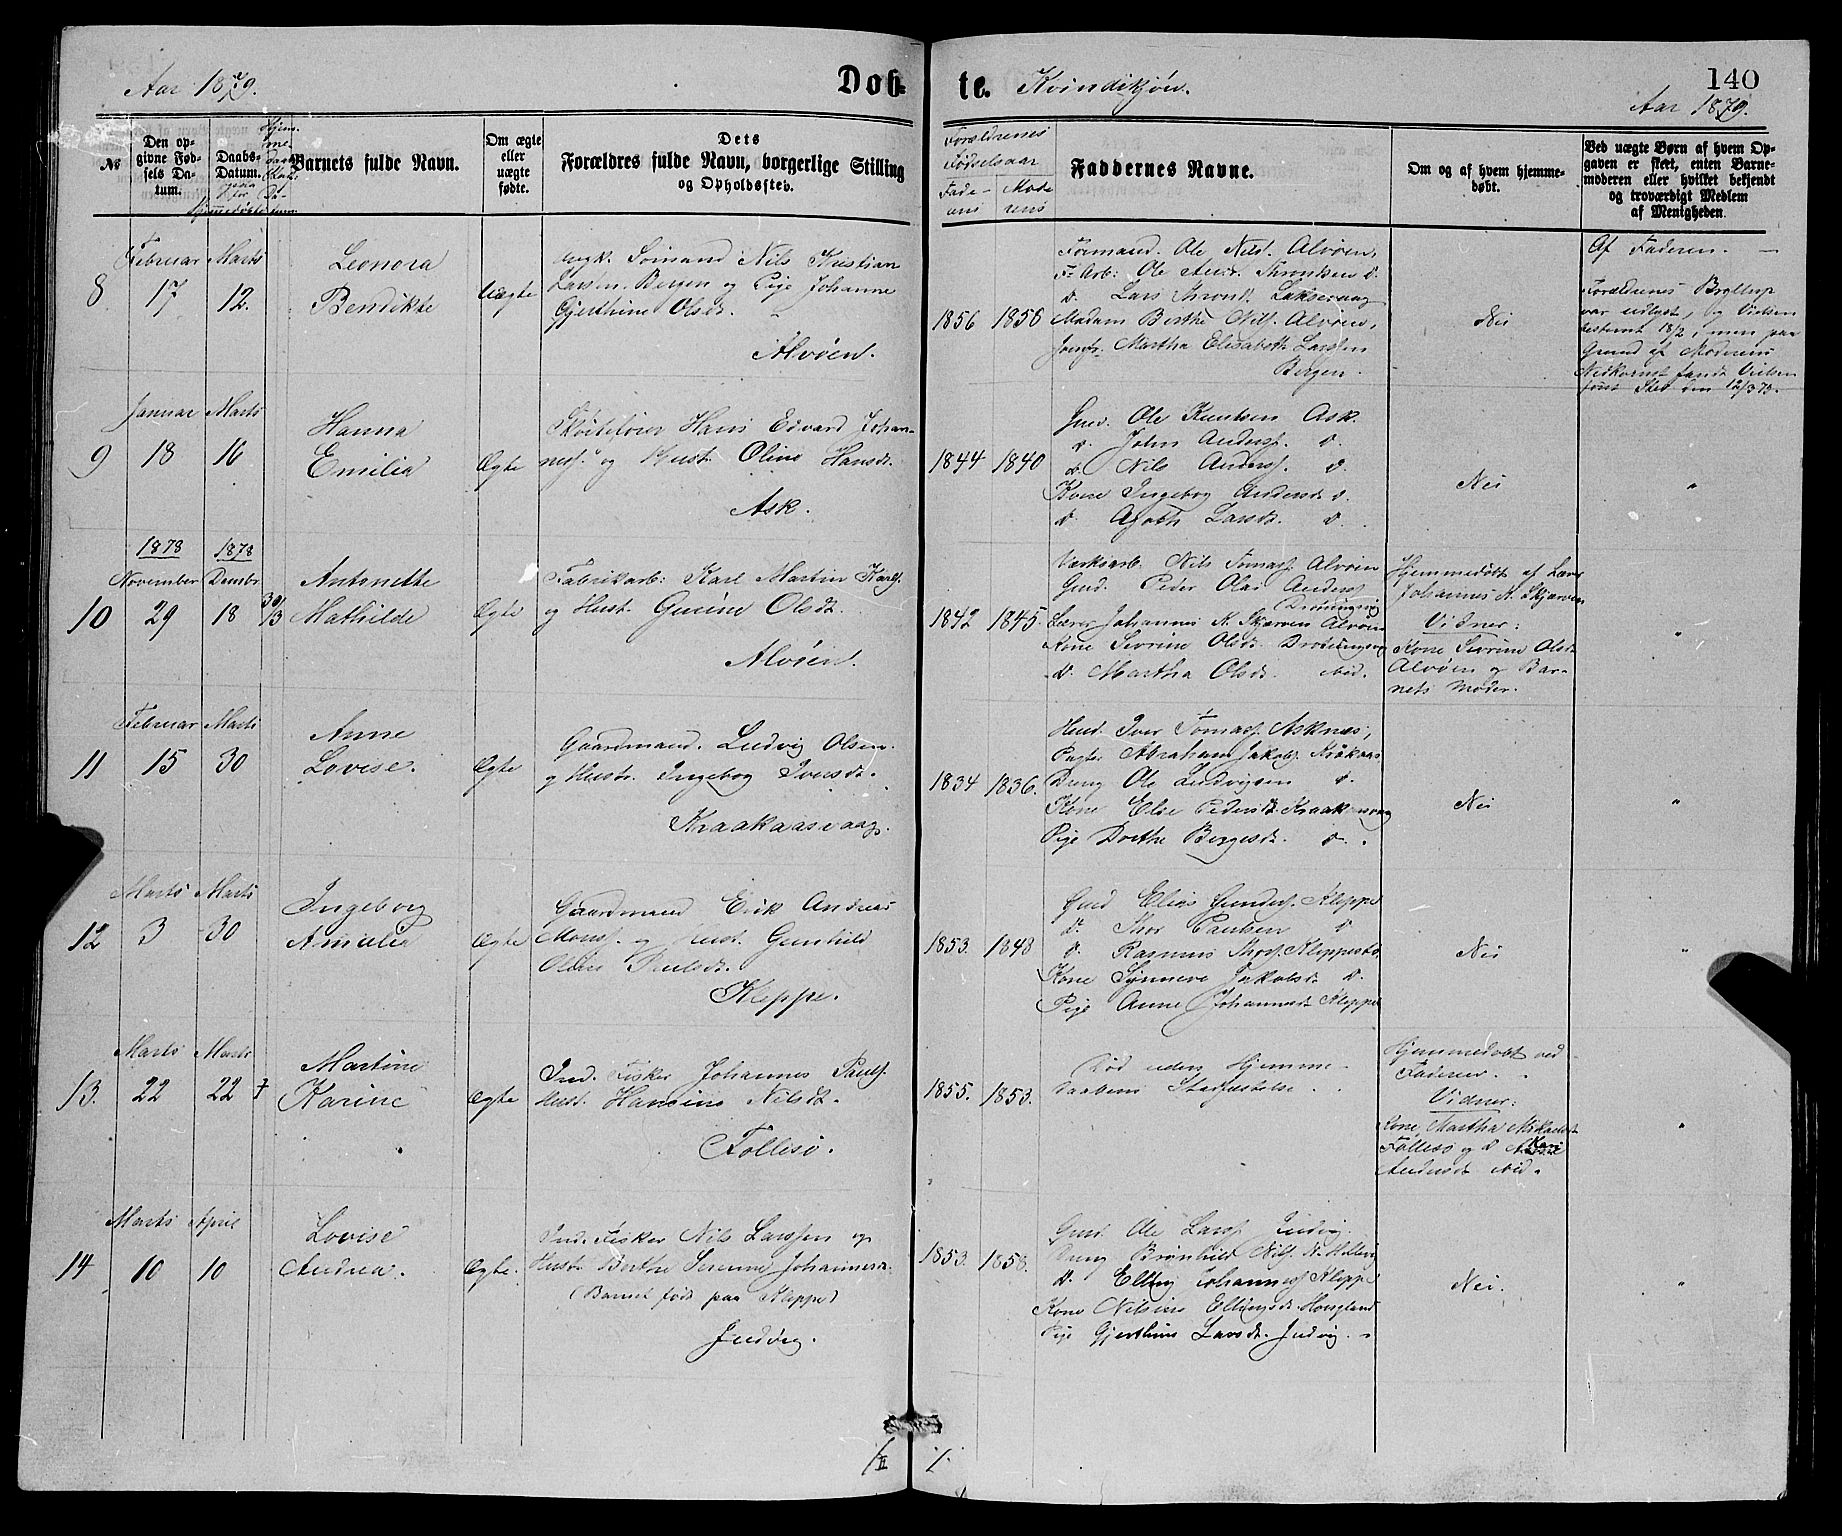 Aar 1879.
Døb-
te. Kvindekjøn.
140
Aar 1879.
№
Den op-
givne Fød-
sels Da-
tum.
Daabs-
Datum.
Barnets fulde Navn.
Om ægte
eller
uægte
fødte.
Dets
Forældres fulde Navn, borgerlige Stilling
og Opholdssted.
Forældrenes
Fødselsaar
Fade-
rens
Mode
rens
Faddernes Navne.
Om og af hvem hjemme-
døbt.
Ved uægte Børn af hvem Op-
gaven er skeet, enten Barne-
moderen eller hvilket bekjendt
og troværdigt Medlem
af Menigheden.
8
Februar
17
Marts
12.
Leonora
Bendikte
Uægte
Ungk. Sømand Nils Kristian
Larsen Bergen og Pige Johanne
Gjerthine Olsdt.
Alvøen.
1856
1856
Formand. Ole Nils. Alvøen,
Ole And. Thronsen d.
d. Lars Laksevaag
Madam Berthe Nils. Alvøen,
Jomfr. Martha Elisabeth Larsen
Bergen.
Nei
Af Faderen.
Forældrenes Bryllup
var udlyst, og Vielsen
bestemt 18/2, men paa
Grund af Moderens
Nedkomst fandt Vielsen
først Sted den 12/3 79.
9
Januar
18
Marts
16
Hanna
Emilia
Ægte
Skøitefører Hans Edvard Johan-
nes. og Hust. Oline Hansdt.
Ask.
1844
1840
Gmd. Ole Knutsen Ask.
d. John Anders. d.
d. Nils Anders. d.
Kone Ingebog Andersdt d.
d. Agathe Larsdt. d.
Nei
"
10
1878
November
29
1878
Decmbr
18
30/3
Antonette
Mathilde
Ægte
Fabrikarb: Karl Martin Karls.
og Hust. Gurine Olsdt.
Alvøen.
1842
1845.
Værksarb. Nils Tomas. Alvøen
Gmd. Peder Olai Anders.
Drotningsvig
Lærer Johannes K. Skjærven Alvøen
Kone Sivrine Olsdt. Drotningsvig
d. Martha Olsdt. ibid.
Hjemmedøbt af Lærer
Johannes K. Skjærven
Vidner:
Kone Sivrine Olsdt
Alvøen og Bar-
nets Moder.
"
11
Februar
15
Marts
30
Anne
Lovise.
Ægte
Gaardmand. Ludvig Olsen.
og Hustr. Ingebog Iversdt.
Kraakaasvaag.
1834
1836.
Iver Tomas. Asknæs,
Abraham Jakobs. Kråkaas
Dreng Ole Ludvigsen d.
Kone Else Pedersdt.
Pige Dorthe Bergesdt. d.
Nei
"
12
Marts
3
Marts
30
Ingeborg
Amalia
Ægte
Gaardmand Erik Andreas
Mons. og Hust. Gunhild
Oline Paulsdt.
Kleppe.
1853.
1848
Gmd Elias Gunders. Kleppe
d. Thor Paulsen d
d. Rasmus Thors. Kleppestø
Kone Synneve Jakobsdt d.
Pige Anne Johannesdt Kleppe
Nei
"
13.
Marts
22
Marts
22
Martine
Karine
Ægte
Ind. Fisker Johannes Pauls.
Hust. Hansine Nilsdt.
Follesø.
1855.
1853.
Død uden Hjemme-
daabens Stadfæstelse.
Hjemmedøbt ved
Faderen.
Vidner:
Kone Martha Mikaelsdt
Follesø og d Kari
Andersdt ibid.
"
14
Marts
10
April
10
Lovise
Andrea.
Ægte.
Ind. Fisker Nils Larssen og
Hustr Berthe Serine Johannesdt.
(Barnet født paa Kleppe)
Judvig.
1853.
1858.
Gmd. Ole Larss. Judvig
Dreng Brønhild Nils. N. Hillevig
d. Elling Johannes. Kleppe
Kone Nilsine Ellingsdt. Hougland
Pige Gjerthine Larsdt. Judvig.
Nei.
"